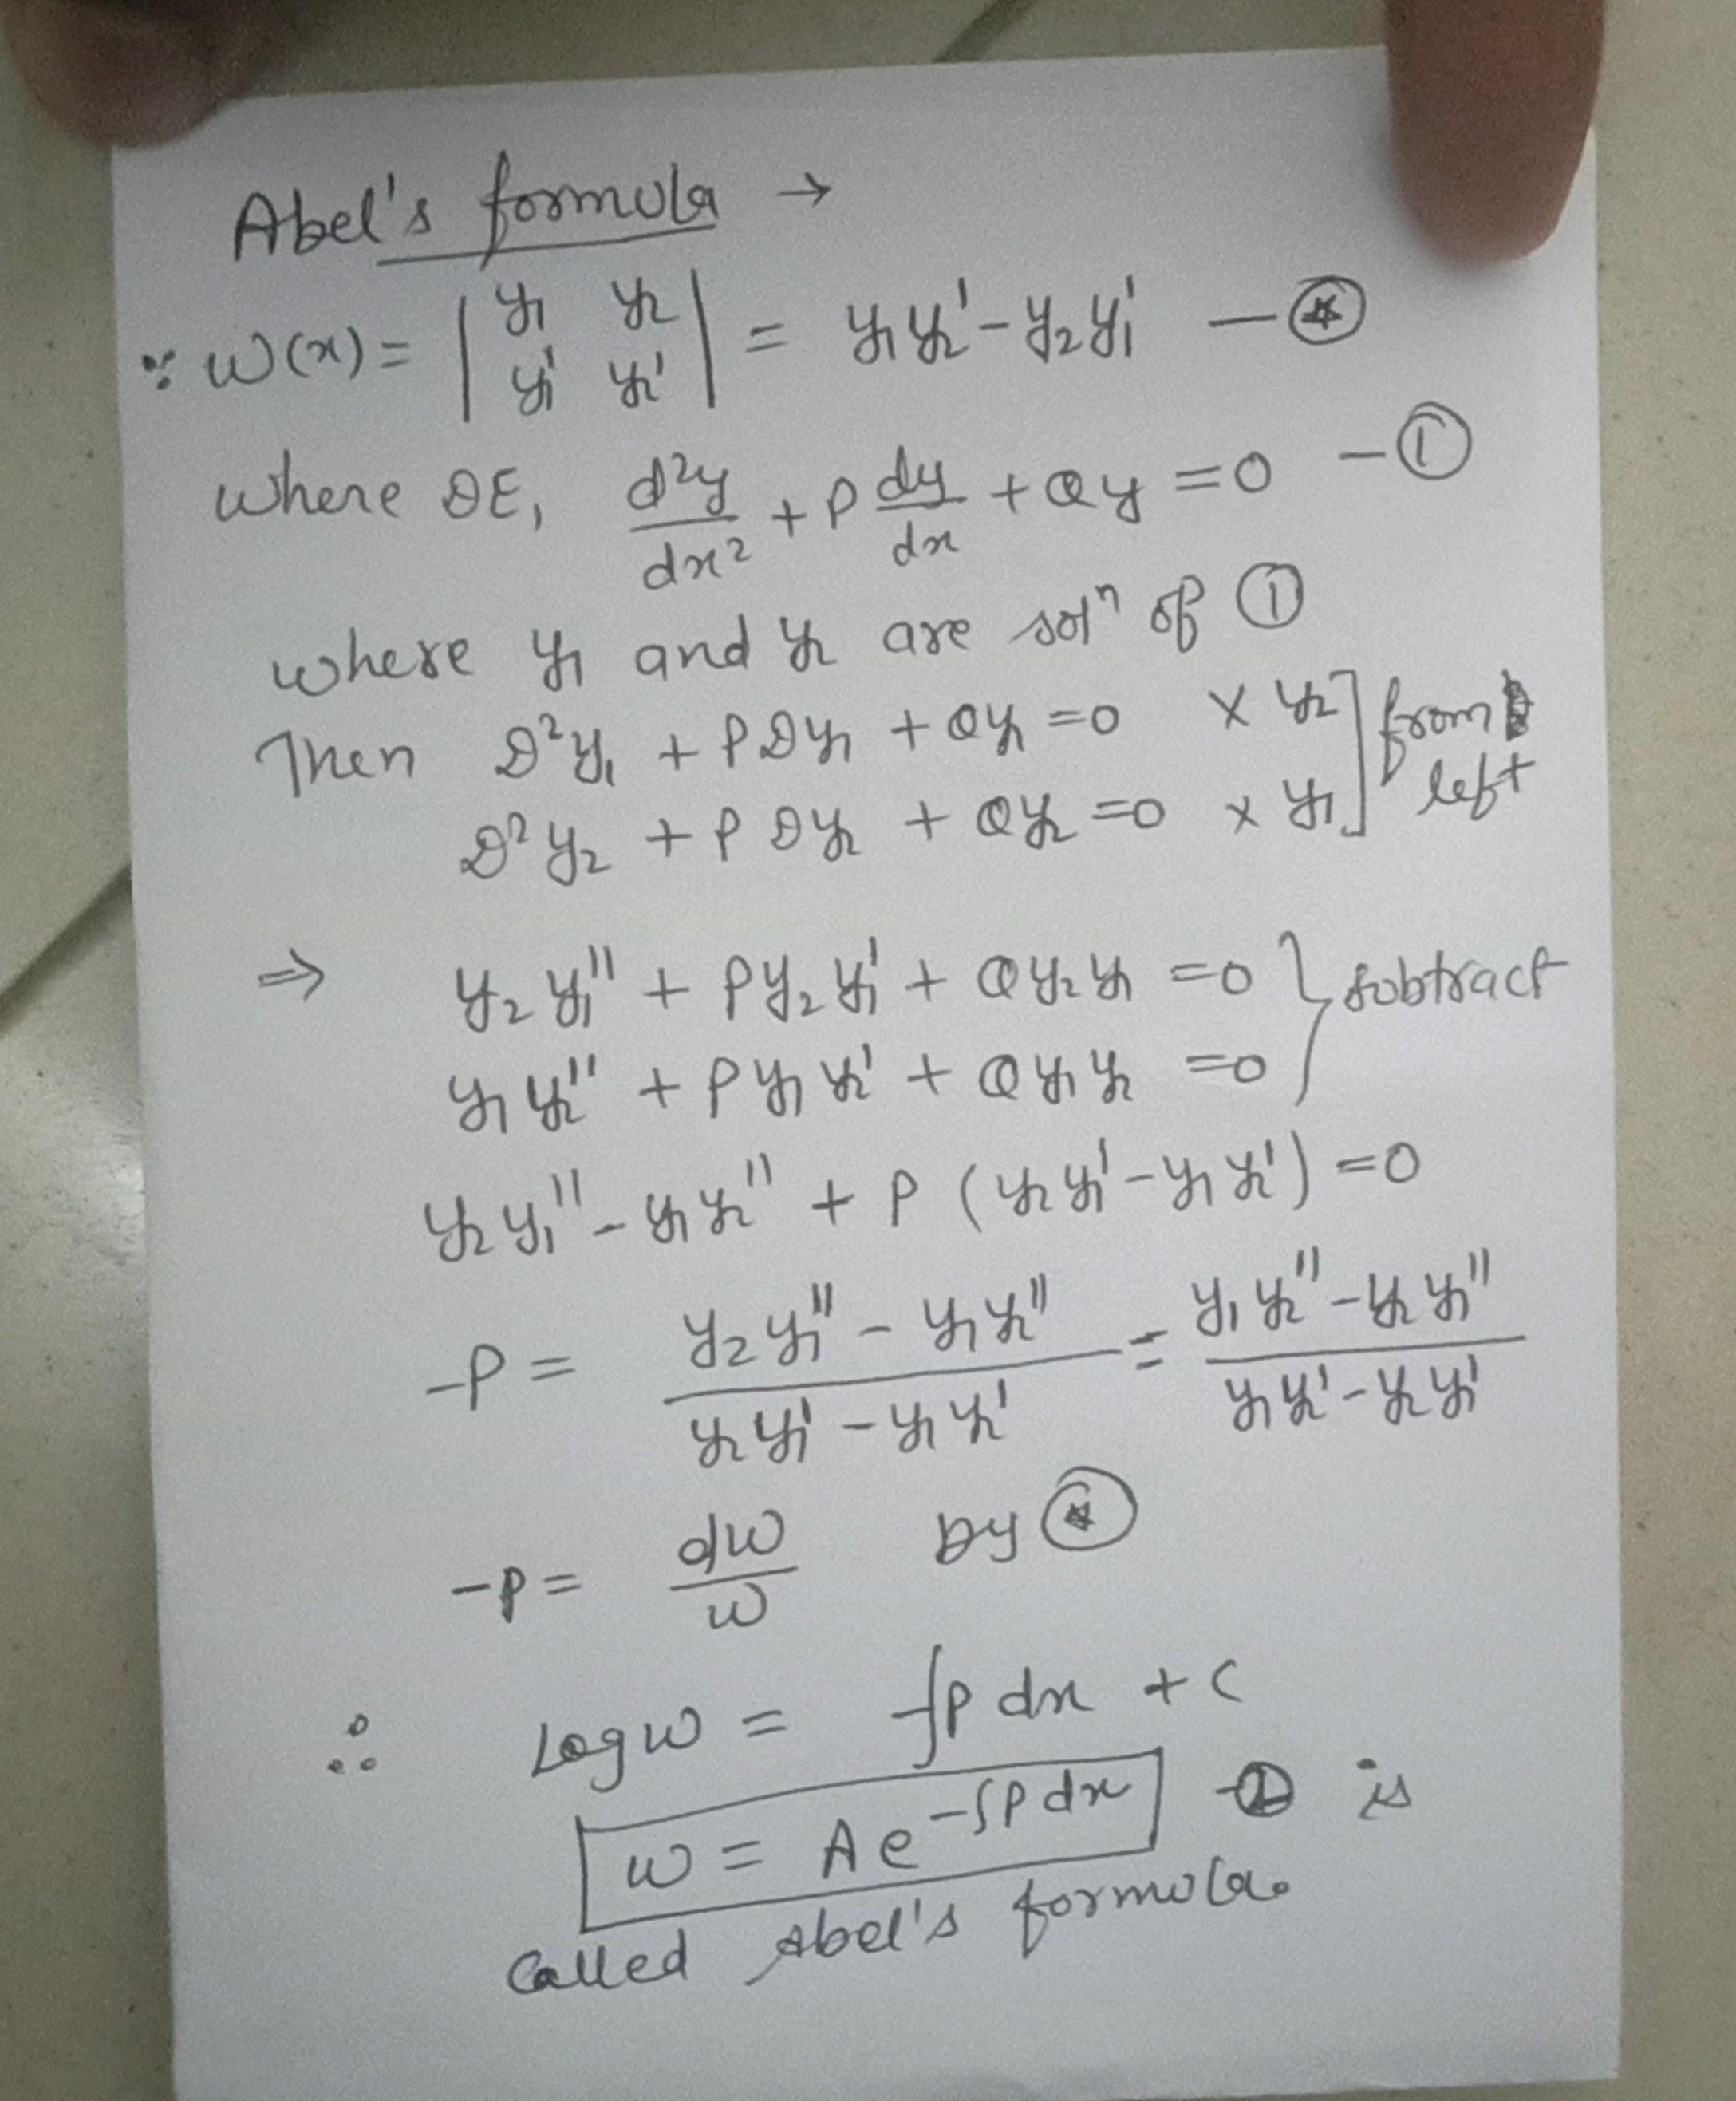 Abel's formula →
∵ W(x) = | y₁ y₂ ; y₁' y₂' | = y₁y₂' - y₂y₁' — ⍟
where DE, d²y/dx² + P dy/dx + Qy = 0 - ①
where y₁ and y₂ are solⁿ of ①
Then D²y₁ + PDy₁ + Qy₁ = 0 × y₂ ] from
D²y₂ + P Dy₂ + Qy₂ = 0 × y₁ ] left
⇒ y₂y₁'' + Py₂y₁' + Qy₂y₁ = 0 } subtract
y₁y₂'' + Py₁y₂' + Qy₁y₂ = 0
y₂y₁'' - y₁y₂'' + P (y₂y₁' - y₁y₂') = 0
-P = (y₂y₁'' - y₁y₂'')/(y₂y₁' - y₁y₂') = (y₁y₂'' - y₂y₁'')/(y₁y₂' - y₂y₁')
-P = dW/W by ⍟
∴ Log W = -∫P dx + C
W = A e^(-∫P dx) -② is
Called Abel's formula.